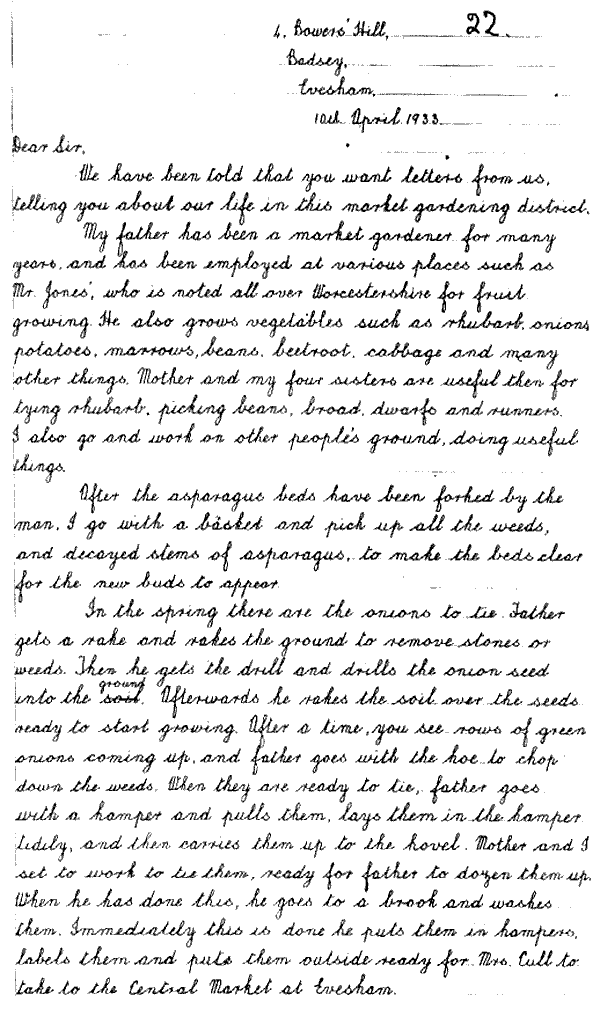 4, Bowers' Hill, 22.
Badsey,
Evesham,
10th April 1933
Dear Sir,
We have been told that you want letters from us,
telling you about our life in this market gardening district.
My father has been a market gardener for many
years, and has been employed at various places such as
Mr. Jones', who is noted all over Worcestershire for fruit
growing. He also grows vegetables such as rhubarb, onions
potatoes, marrows, beans, beetroot, cabbage and many
other things. Mother and my four sisters are useful then for
tying rhubarb, picking beans, broad, dwarfs and runners.
I also go and work on other people's ground, doing useful
things.
After the asparagus beds have been forked by the
man, I go with a basket and pick up all the weeds,
and decayed stems of asparagus, to make the beds clear
for the new buds to appear.
In the spring there are the onions to tie. Father
gets a rake and rakes the ground to remove stones or
weeds. Then he gets the drill and drills the onion seed
into the soil ground. Afterwards he rakes the soil over the seeds
ready to start growing. After a time, you see rows of green
onions coming up, and father goes with the hoe to chop
down the weeds. When they are ready to tie, father goes
with a hamper and pulls them, lays them in the hamper
tidily, and then carries them up to the hovel. Mother and I
set to work to tie them, ready for father to dozen them up.
When he has done this, he goes to a brook and washes
them. Immediately this is done he puts them in hampers,
labels them and puts them outside ready for Mrs. Cull to
take to the Central Market at Evesham.